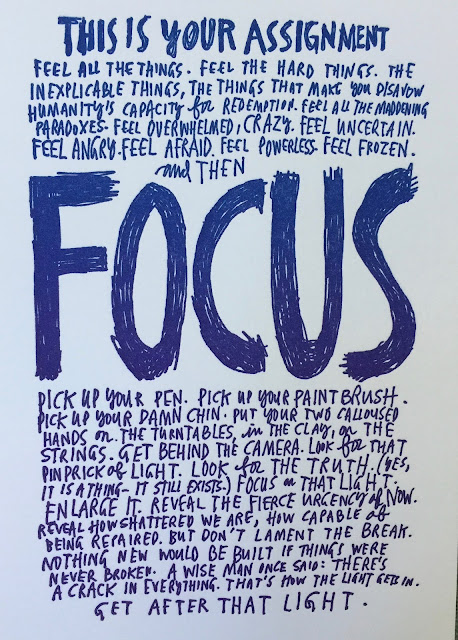 THIS IS YOUR ASSIGNMENT
FEEL ALL THE THINGS. FEEL THE HARD THINGS. THE
INEXPLICABLE THINGS, THE THINGS THAT MAKE YOU DISAVOW
HUMANITY'S CAPACITY for REDEMPTION. FEEL ALL THE MADDENING
PARADOXES. FEEL OVERWHELMED, CRAZY. FEEL UNCERTAIN.
FEEL ANGRY. FEEL AFRAID. FEEL POWERLESS. FEEL FROZEN.
and THEN
FOCUS
PICK UP YOUR PEN. PICK UP YOUR PAINTBRUSH.
PICK UP YOUR DAMN CHIN. PUT YOUR TWO CALLOUSED
HANDS on THE TURNTABLES, in THE CLAY, on THE
STRINGS. GET BEHIND THE CAMERA. LOOK for THAT
PINPRICK of LIGHT. LOOK for THE TRUTH. (YES,
IT IS A THING—IT STILL EXISTS.) FOCUS on THAT LIGHT.
ENLARGE IT. REVEAL THE FIERCE URGENCY of NOW.
REVEAL HOW SHATTERED WE ARE, HOW CAPABLE of
BEING REPAIRED. BUT DON'T LAMENT THE BREAK.
NOTHING NEW WOULD BE BUILT IF THINGS WERE
NEVER BROKEN. A WISE MAN ONCE SAID: THERE'S
A CRACK IN EVERYTHING. THAT'S HOW THE LIGHT GETS IN.
GET AFTER THAT LIGHT.